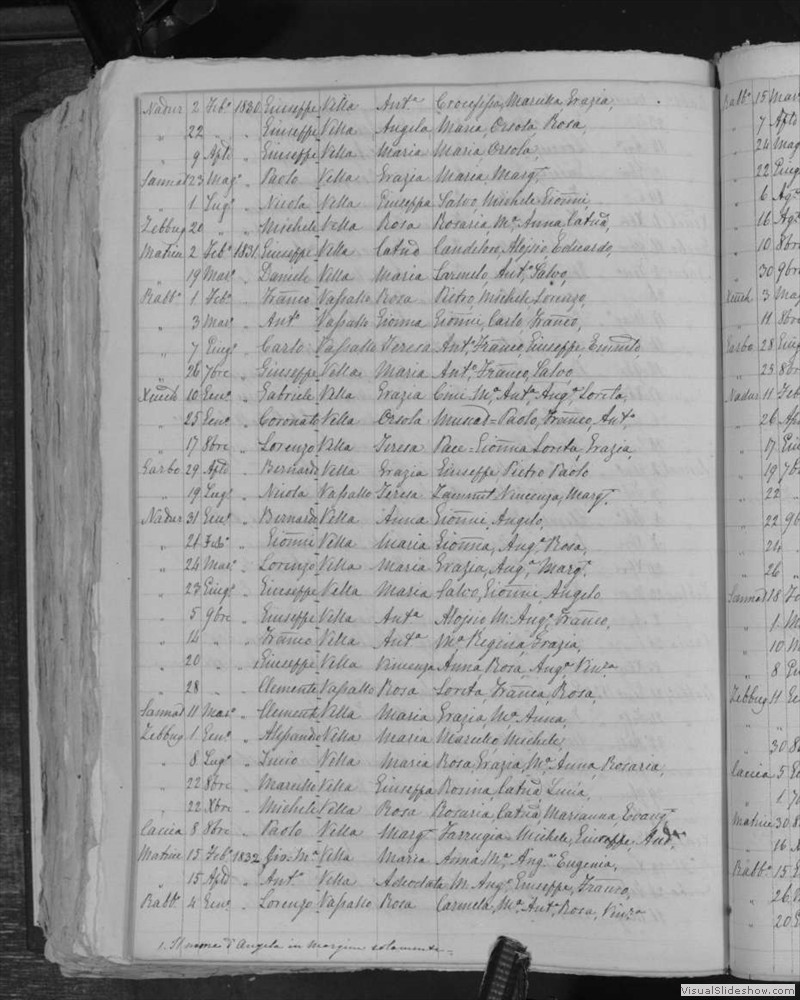 Nadur 2 Feb.º 1830 Giuseppe Vella Ant.ª Crocifissa, Mariella, Grazia,
„ 22 „ „ Giuseppe Vella Angela Maria, Orsola, Rosa,
„ 9 Aple „ Giuseppe Vella Maria Maria, Orsola,
Sannat 23 Mag.º „ Paolo Vella Grazia Maria, Marg.ª
„ 1 Lug.º „ Nicola Vella Giuseppa Salvo, Michele, Gionni
Zebbug 20 „ „ Michele Vella Rosa Rosaria, M.ª Anna, Catna,
Matrice 2 Feb.º 1831 Giuseppe Vella Catna Aloisio, Edoardo,
„ 19 Mar.º „ Daniele Vella Maria Carmelo, Ant.º, Salvo,
Rabb.º 1 Feb.º „ Franco Vassallo Rosa Pietro, Michele, Lorenzo,
„ 3 Mar.º „ Ant.º Vassallo Gionna Gionni, Carlo, Franco,
„ 7 Giug.º „ Carlo Vassallo Teresa Ant.º, Franco, Giuseppe,
„ 26 7bre „ Giuseppe Vella Maria Ant.º, Franco, Salvo,
10 Gen.º „ Gabriele Vella Grazia M.ª Ant.ª, Ang.ª, Loreta,
„ 25 Gen.º „ Coronato Vella Orsola Paolo, Franco, Ant.º
„ 17 8bre „ Lorenzo Vella Teresa Pace = Gionna, Loreta, Grazia,
Garbo 29 Aple „ Bernardo Vella Grazia Giuseppe, Pietro Paolo
„ 19 Lug.º „ Nicola Vassallo Teresa Zammit, Vincenza, Marg.ª
Nadur 31 Gen.º „ Bernardo Vella Anna Gionni, Angelo,
„ 21 Feb.º „ Gionni Vella Maria Gionna, Ang.ª, Rosa,
„ 24 Mar.º „ Lorenzo Vella Maria Grazia, Ang.ª, Marg.ª
„ 23 Giug.º „ Giuseppe Vella Maria Salvo, Gionni, Angelo
„ 5 9bre „ Giuseppe Vella Ant.ª Aloisio M. Ang.º, Franco,
„ 14 „ „ Franco Vella Ant.ª M.ª Regina, Grazia,
„ 20 „ „ Giuseppe Vella Vincenza Anna, Rosa, Ang.ª, Vin.za
„ 28 „ „ Clemente Vassallo Rosa Loreta, Franca, Rosa,
Sannat 11 Mar.º „ Clemente Vella Maria Grazia, M.ª Anna,
Zebbug 1 Gen.º „ Vella Maria Marcello, Michele,
„ 8 Lug.º „ Vella Maria Rosa, Grazia, M.ª Anna, Rosaria,
„ 22 8bre „ Marcello Vella Giuseppa Rosina, Catna, Lucia,
„ 22 Xbre „ Michele Vella Rosa Rosaria, Catna, Marianna, Evang.ª
Caccia 8 8bre „ Paolo Vella Marg.ª Farrugia = Michele, Giuseppe, And.ª
Matrice 15 Feb.º 1832 Gio. M.ª Vella Maria Anna M.ª, Ang.ª, Eugenia,
„ 15 Aple „ Ant.º Vella Adeodata M. Ang.º, Giuseppe, Franco,
Rabb.º 4 Gen.º „ Lorenzo Vassallo Rosa Carmela, M.ª Ant.ª, Rosa, Vin.za
1. Il nome d'Angela in margine solamente =
Rabb.º 15 Mar
„ 7 Aple
24 Mag
22 Giug
„ 6 Ag.º
„ 16 Ag.º
„ 10 8bre
„ 30 9bre
3 Mag
„ 11 8bre
Garbo 28 Giug
„ 23 8bre
Nadur 11 Feb
„ 26 Ap
„ 17 Giu
„ 19 7b
„ 22
„ 22 9b
„ 24
„ 26
Sannat 18
„ 1 M
„ 10 M
„ 8 Gi
Zebbug 11 Ge
„ 30
Caccia 5
„ 1
Matrice 30
„ 16
Rabb.º 15
„ 26
„ 20
VisualSlideshow.com